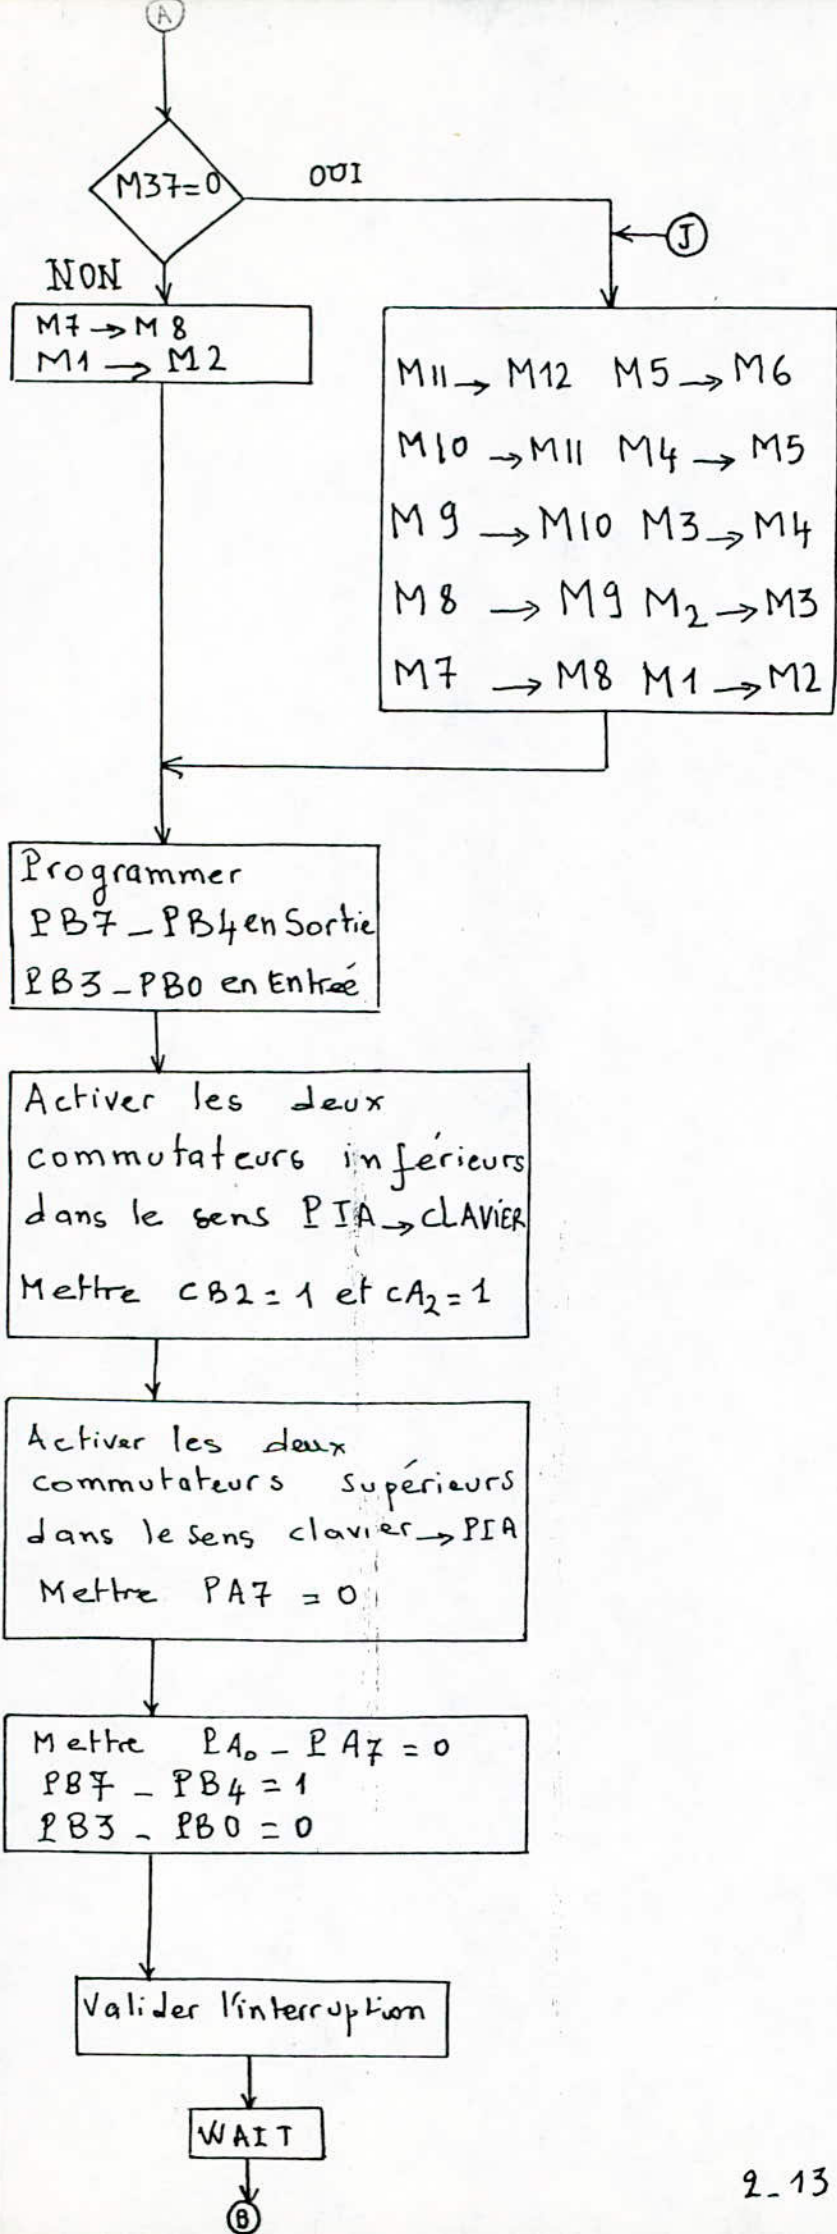 A
M37=0
OUI
J
NON
M7 → M8
M1 → M2
M11 → M12 M5 → M6
M10 → M11 M4 → M5
M9 → M10 M3 → M4
M8 → M9 M2 → M3
M7 → M8 M1 → M2
Programmer
PB7 - PB4 en Sortie
PB3 - PB0 en Entrée
Activer les deux
commutateurs inférieurs
dans le sens PIA → CLAVIER
Mettre CB2 = 1 et CA2 = 1
Activer les deux
commutateurs supérieurs
dans le sens clavier → PIA
Mettre PA7 = 0
Mettre PA0 - PA7 = 0
PB7 - PB4 = 1
PB3 - PB0 = 0
Valider l'interruption
WAIT
B
2-13